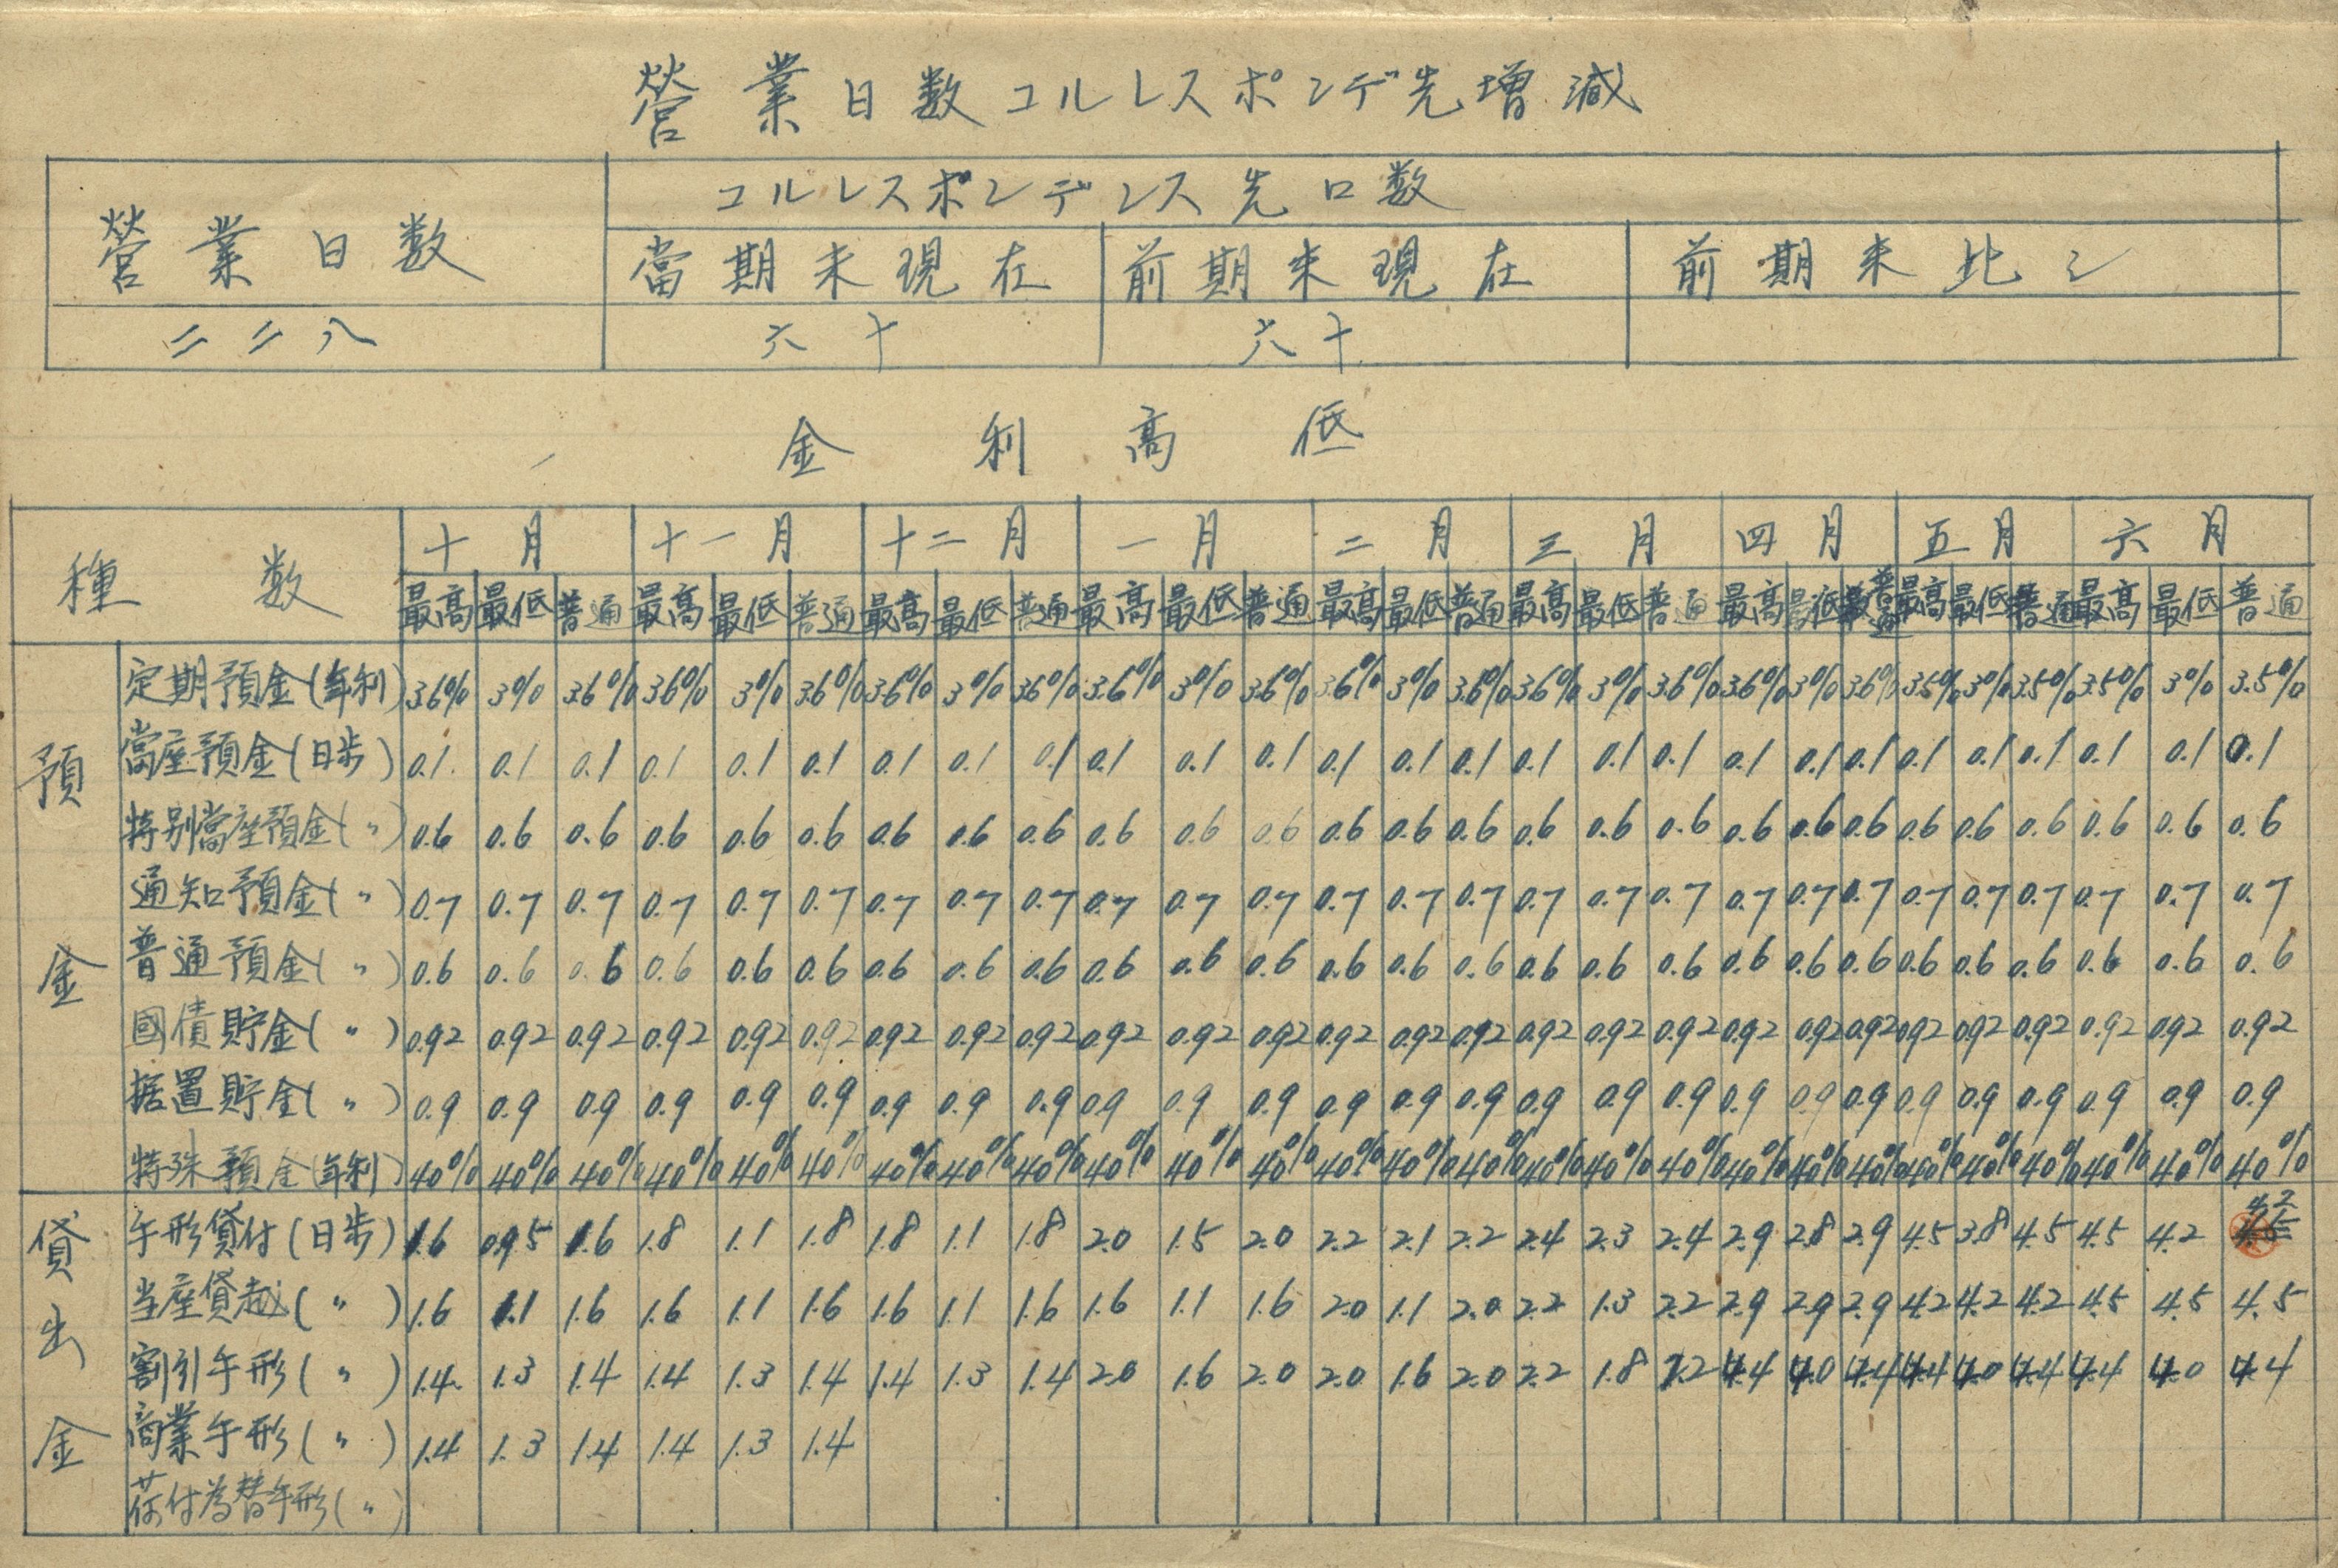 營業日数コルレスポンデ先増減
營業日数 コルレスポンデンス先口数
當期末現在 前期末現在 前期末比シ
二二八 六十 六十
金利高低
種数 十月 十一月 十二月 一月 二月 三月 四月 五月 六月
最高 最低 普通 最高 最低 普通 最高 最低 普通 最高 最低 普通 最高 最低 普通 最高 最低 普通 最高 最低 普通 最高 最低 普通 最高 最低 普通
預金
定期預金(年利) 3.6% 3% 3.6% 3.6% 3% 3.6% 3.6% 3% 3.6% 3.6% 3% 3.6% 3.6% 3% 3.6% 3.6% 3% 3.6% 3.6% 3% 3.6% 3.5% 3% 3.5% 3.5% 3% 3.5%
當座預金(日歩) 0.1 0.1 0.1 0.1 0.1 0.1 0.1 0.1 0.1 0.1 0.1 0.1 0.1 0.1 0.1 0.1 0.1 0.1 0.1 0.1 0.1 0.1 0.1 0.1 0.1 0.1 0.1
特別當座預金(〃) 0.6 0.6 0.6 0.6 0.6 0.6 0.6 0.6 0.6 0.6 0.6 0.6 0.6 0.6 0.6 0.6 0.6 0.6 0.6 0.6 0.6 0.6 0.6 0.6 0.6 0.6 0.6
通知預金(〃) 0.7 0.7 0.7 0.7 0.7 0.7 0.7 0.7 0.7 0.7 0.7 0.7 0.7 0.7 0.7 0.7 0.7 0.7 0.7 0.7 0.7 0.7 0.7 0.7 0.7 0.7 0.7
普通預金(〃) 0.6 0.6 0.6 0.6 0.6 0.6 0.6 0.6 0.6 0.6 0.6 0.6 0.6 0.6 0.6 0.6 0.6 0.6 0.6 0.6 0.6 0.6 0.6 0.6 0.6 0.6 0.6
國債貯金(〃) 0.92 0.92 0.92 0.92 0.92 0.92 0.92 0.92 0.92 0.92 0.92 0.92 0.92 0.92 0.92 0.92 0.92 0.92 0.92 0.92 0.92 0.92 0.92 0.92 0.92 0.92 0.92
据置貯金(〃) 0.9 0.9 0.9 0.9 0.9 0.9 0.9 0.9 0.9 0.9 0.9 0.9 0.9 0.9 0.9 0.9 0.9 0.9 0.9 0.9 0.9 0.9 0.9 0.9 0.9 0.9 0.9
特殊預金(年利) 40% 40% 40% 40% 40% 40% 40% 40% 40% 40% 40% 40% 40% 40% 40% 40% 40% 40% 40% 40% 40% 40% 40% 40% 40% 40% 40%
貸出金
手形貸付(日歩) 1.6 0.95 1.6 1.8 1.1 1.8 1.8 1.1 1.8 2.0 1.5 2.0 2.2 2.1 2.2 2.4 2.3 2.4 2.9 2.8 2.9 4.5 3.8 4.5 4.5 4.2
当座貸越(〃) 1.6 1.1 1.6 1.6 1.1 1.6 1.6 1.1 1.6 1.6 1.1 1.6 2.0 1.1 2.0 2.2 1.3 2.2 2.9 2.9 2.9 4.2 4.2 4.2 4.5 4.5 4.5
割引手形(〃) 1.4 1.3 1.4 1.4 1.3 1.4 1.4 1.3 1.4 2.0 1.6 2.0 2.0 1.6 2.0 2.2 1.8 2.2 4.4 4.0 4.4 4.4 4.0 4.4 4.4 4.0 4.4
商業手形(〃) 1.4 1.3 1.4 1.4 1.3 1.4
荷付為替手形(〃)